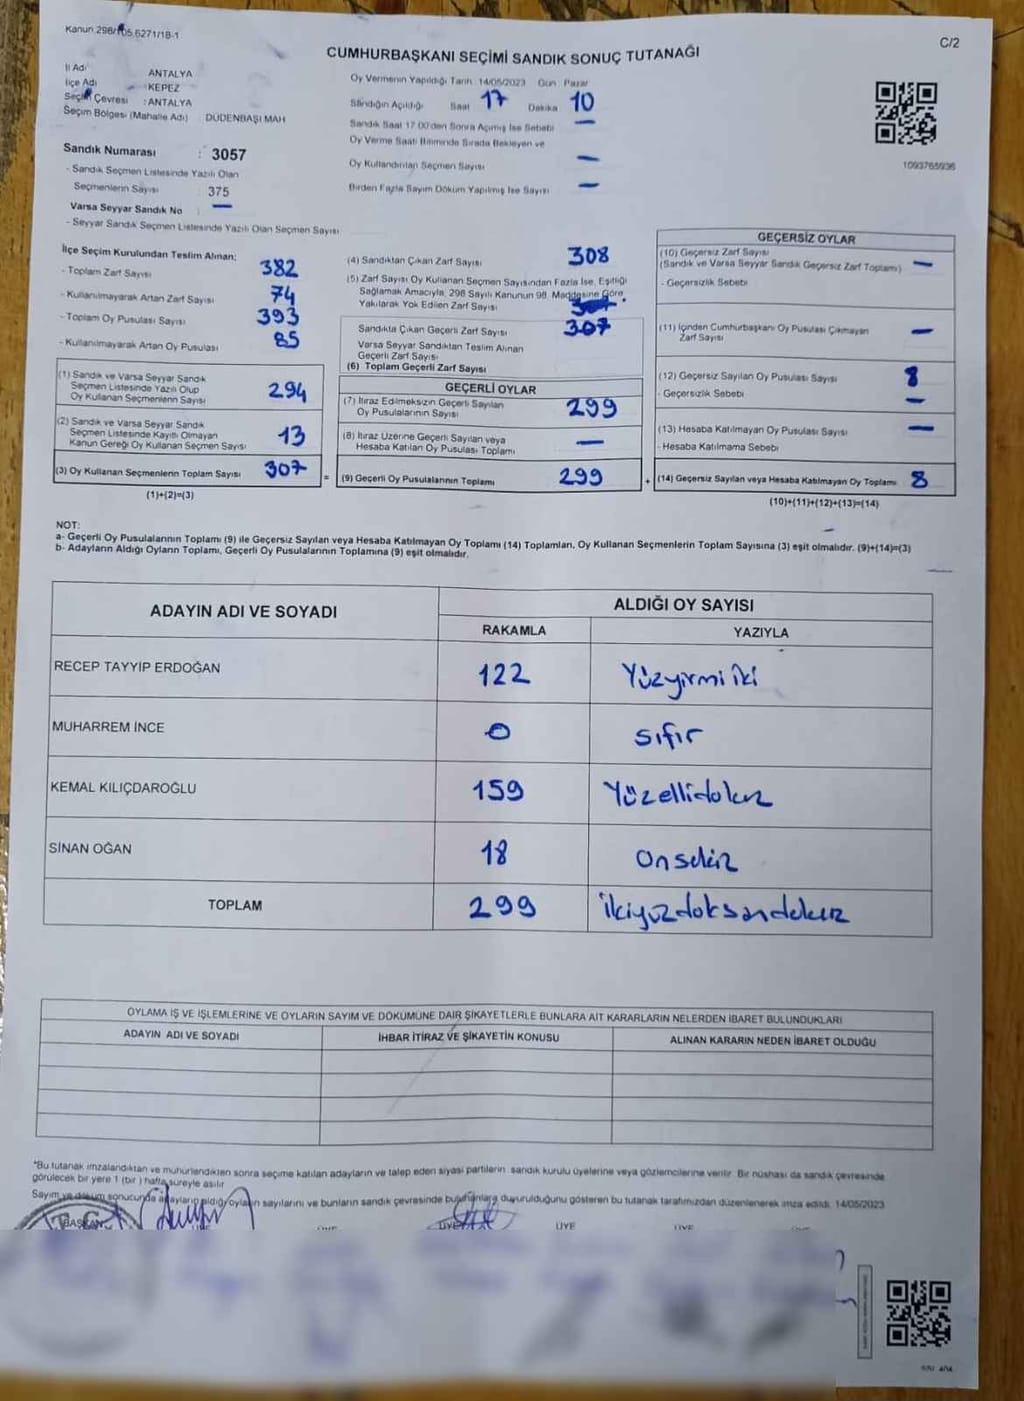 Kanun 298/105,6271/18-1
C/2
CUMHURBAŞKANI SEÇİMİ SANDIK SONUÇ TUTANAĞI
İl Adı : ANTALYA
İlçe Adı : KEPEZ
Seçim Çevresi : ANTALYA
Seçim Bölgesi (Mahalle Adı) : DÜDENBAŞI MAH
Oy Vermenin Yapıldığı Tarih 14/05/2023 Gün Pazar
Sandığın Açıldığı Saat 17 Dakika 10
Sandık Saat 17.00'den Sonra Açılmış İse Sebebi —
Oy Verme Saati Bitiminde Sırada Bekleyen ve
Oy Kullandırılan Seçmen Sayısı —
Birden Fazla Sayım Döküm Yapılmış İse Sayısı —
1093765936
Sandık Numarası : 3057
- Sandık Seçmen Listesinde Yazılı Olan
Seçmenlerin Sayısı 375
Varsa Seyyar Sandık No : —
- Seyyar Sandık Seçmen Listesinde Yazılı Olan Seçmen Sayısı
İlçe Seçim Kurulundan Teslim Alınan;
- Toplam Zarf Sayısı 382
- Kullanılmayarak Artan Zarf Sayısı 74
- Toplam Oy Pusulası Sayısı 393
- Kullanılmayarak Artan Oy Pusulası 85
(1) Sandık ve Varsa Seyyar Sandık
Seçmen Listesinde Yazılı Olup
Oy Kullanan Seçmenlerin Sayısı 294
(2) Sandık ve Varsa Seyyar Sandık
Seçmen Listesinde Kayıtlı Olmayan
Kanun Gereği Oy Kullanan Seçmen Sayısı 13
(3) Oy Kullanan Seçmenlerin Toplam Sayısı 307
(1)+(2)=(3)
(4) Sandıktan Çıkan Zarf Sayısı 308
(5) Zarf Sayısı Oy Kullanan Seçmen Sayısından Fazla İse, Eşitliği
Sağlamak Amacıyla, 298 Sayılı Kanunun 98. Maddesine Göre
Yakılarak Yok Edilen Zarf Sayısı
Sandıkta Çıkan Geçerli Zarf Sayısı 307
Varsa Seyyar Sandıktan Teslim Alınan
Geçerli Zarf Sayısı
(6) Toplam Geçerli Zarf Sayısı
GEÇERLİ OYLAR
(7) İtiraz Edilmeksizin Geçerli Sayılan
Oy Pusulalarının Sayısı 299
(8) İtiraz Üzerine Geçerli Sayılan veya
Hesaba Katılan Oy Pusulası Toplamı —
= (9) Geçerli Oy Pusulalarının Toplamı 299
GEÇERSİZ OYLAR
(10) Geçersiz Zarf Sayısı
(Sandık ve Varsa Seyyar Sandık Geçersiz Zarf Toplamı) —
- Geçersizlik Sebebi
(11) İçinden Cumhurbaşkanı Oy Pusulası Çıkmayan
Zarf Sayısı —
(12) Geçersiz Sayılan Oy Pusulası Sayısı 8
- Geçersizlik Sebebi —
(13) Hesaba Katılmayan Oy Pusulası Sayısı —
- Hesaba Katılmama Sebebi
+ (14) Geçersiz Sayılan veya Hesaba Katılmayan Oy Toplamı 8
(10)+(11)+(12)+(13)=(14)
NOT:
a- Geçerli Oy Pusulalarının Toplamı (9) ile Geçersiz Sayılan veya Hesaba Katılmayan Oy Toplamı (14) Toplamları, Oy Kullanan Seçmenlerin Toplam Sayısına (3) eşit olmalıdır. (9)+(14)=(3)
b- Adayların Aldığı Oyların Toplamı, Geçerli Oy Pusulalarının Toplamına (9) eşit olmalıdır.
ADAYIN ADI VE SOYADI
ALDIĞI OY SAYISI
RAKAMLA YAZIYLA
RECEP TAYYİP ERDOĞAN 122 Yüzyirmi iki
MUHARREM İNCE 0 sıfır
KEMAL KILIÇDAROĞLU 159 Yüzellidokuz
SİNAN OĞAN 18 onsekiz
TOPLAM 299 ikiyüzdoksandokuz
OYLAMA İŞ VE İŞLEMLERİNE VE OYLARIN SAYIM VE DÖKÜMÜNE DAİR ŞİKAYETLERLE BUNLARA AİT KARARLARIN NELERDEN İBARET BULUNDUKLARI
ADAYIN ADI VE SOYADI İHBAR İTİRAZ VE ŞİKAYETİN KONUSU ALINAN KARARIN NEDEN İBARET OLDUĞU
*Bu tutanak imzalandıktan ve mühürlendikten sonra seçime katılan adayların ve talep eden siyasi partilerin sandık kurulu üyelerine veya gözlemcilerine verilir. Bir nüshası da sandık çevresinde
görülecek bir yere 1 (bir) hafta süreyle asılır
Sayım ve döküm sonucunda adayların aldığı oyların sayılarını ve bunların sandık çevresinde bulunanlara duyurulduğunu gösteren bu tutanak tarafımızdan düzenlenerek imza edildi. 14/05/2023
BAŞKAN ÜYE ÜYE